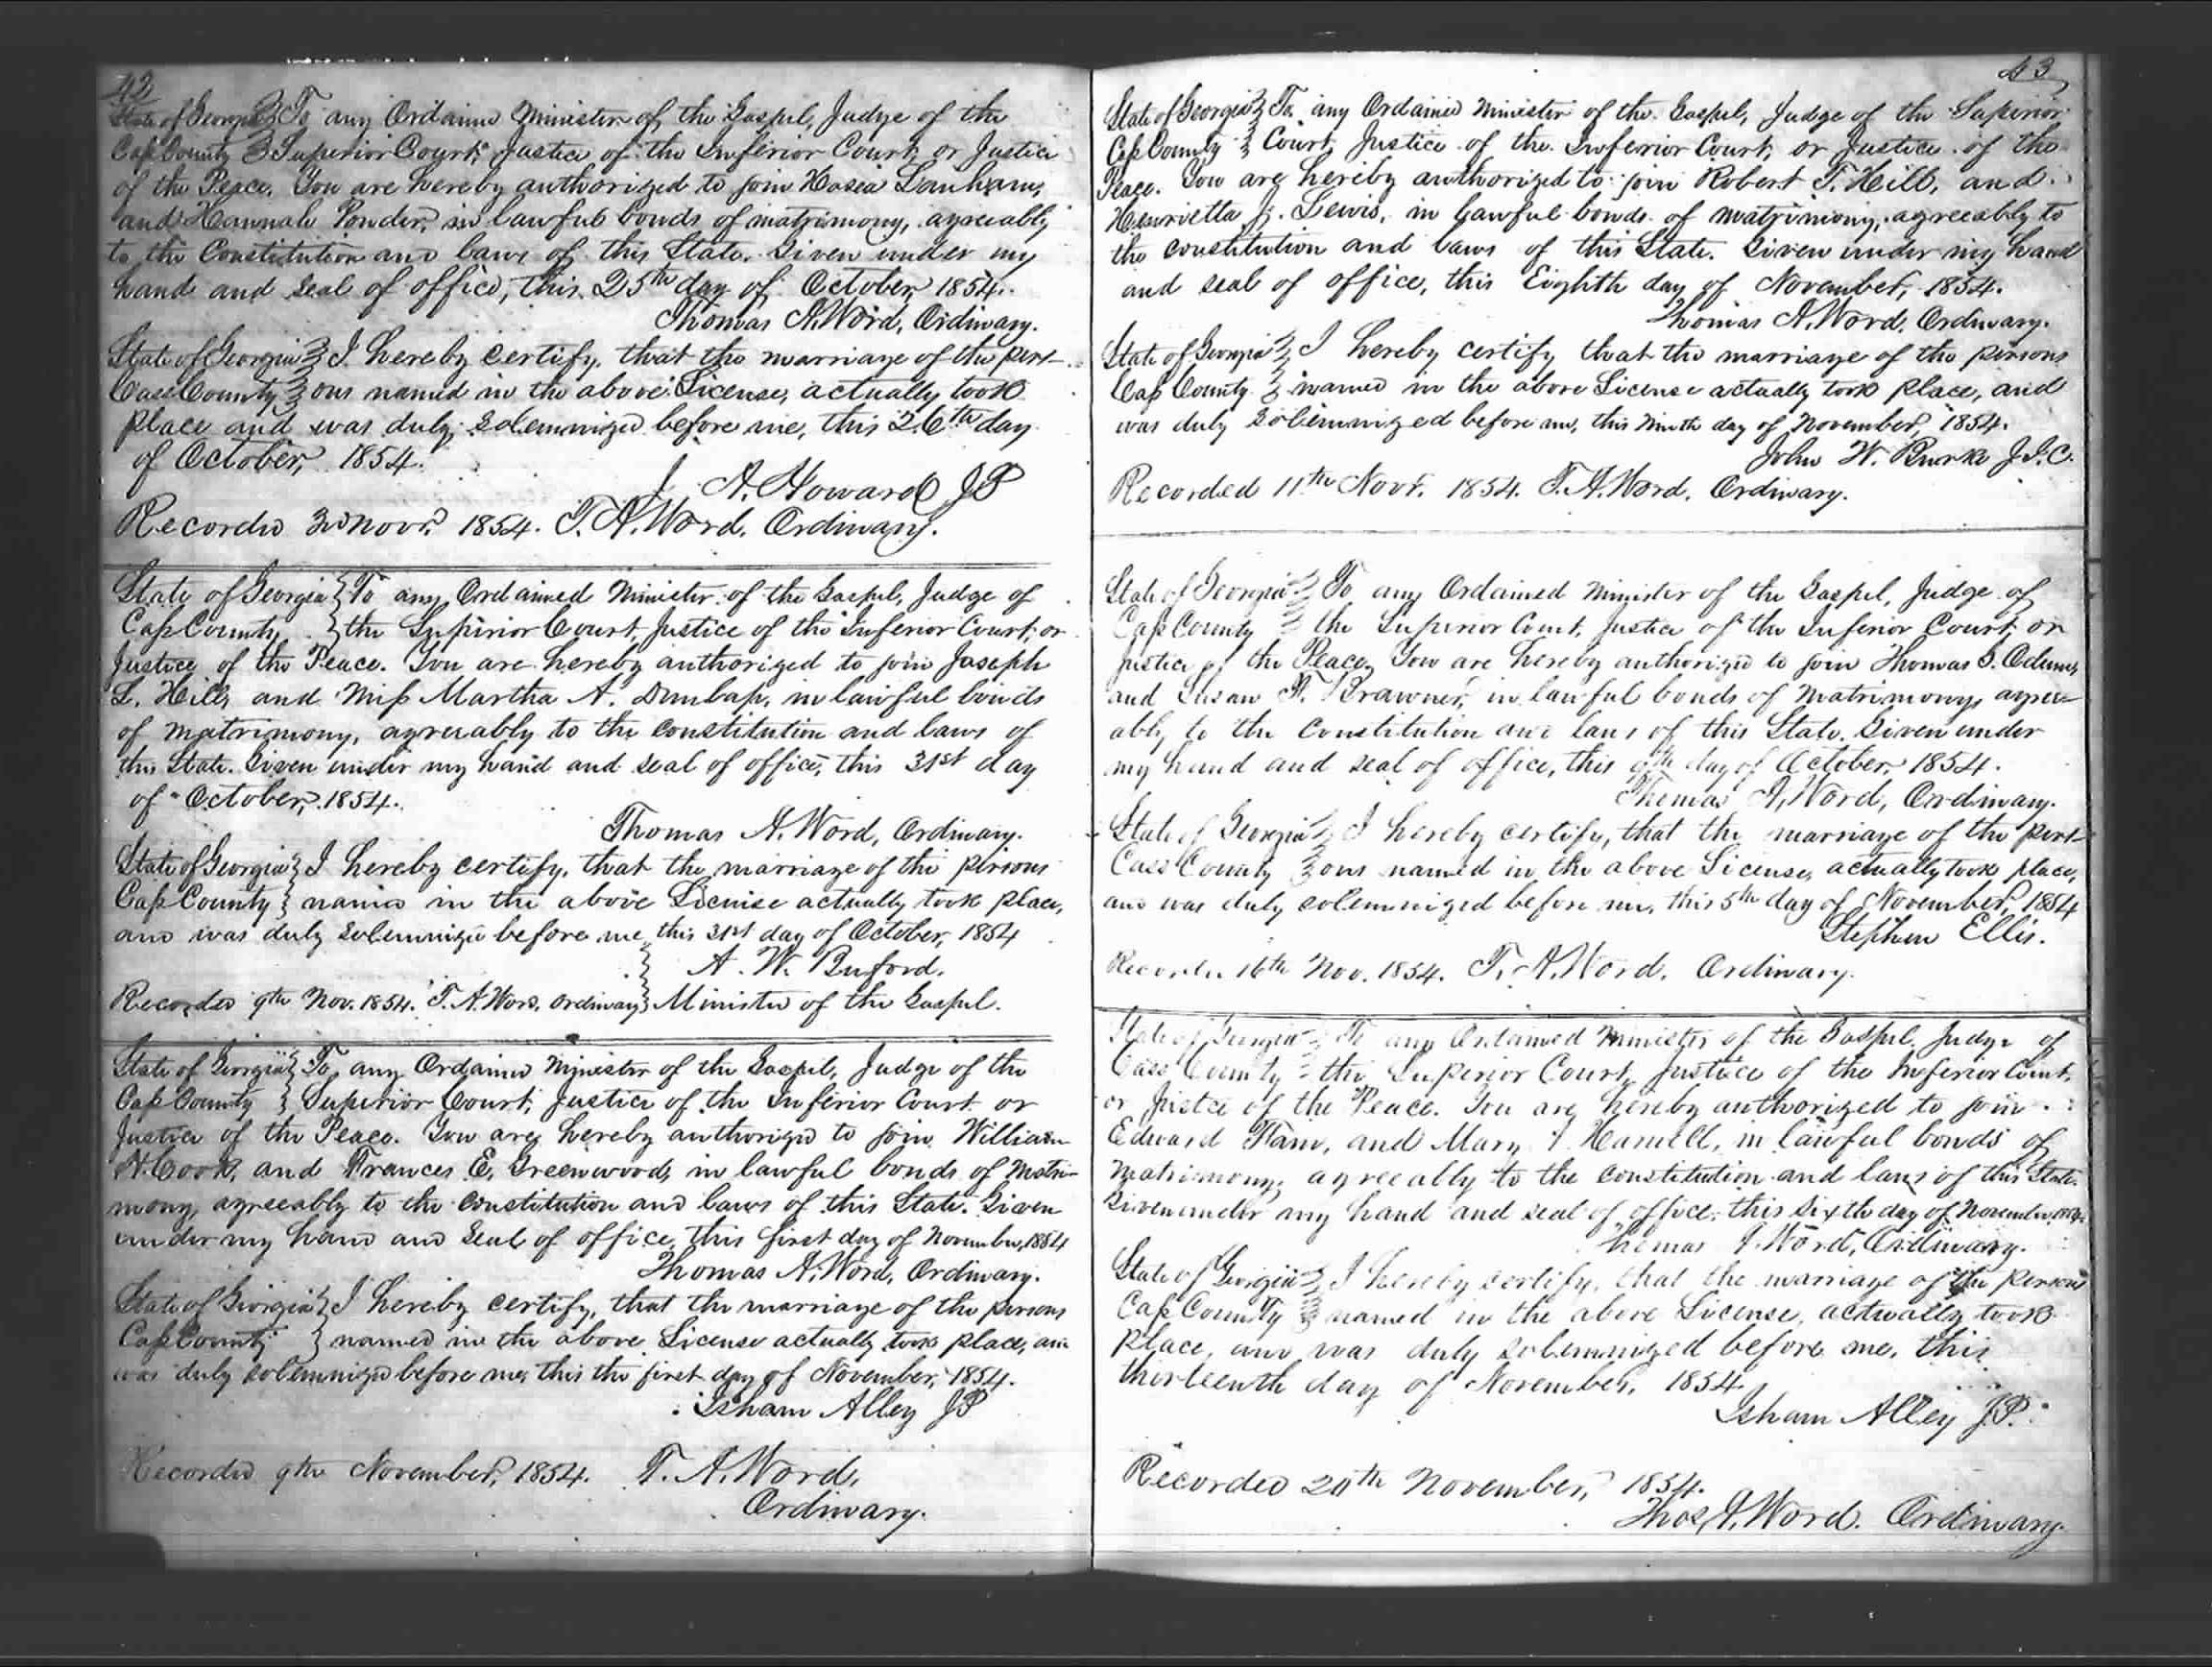 42
State of Georgia } To any Ordained Minister of the Gospel, Judge of the
Cass County } Superior Court, Justice of the Inferior Court, or Justice
of the Peace. You are hereby authorized to join Hosea
and Hannah Ponder, in lawful bonds of matrimony, agreeably
to the Constitution and laws of this State. Given under my
hand and seal of office, this 25th day of October, 1854.
Thomas A. Word, Ordinary.
State of Georgia } I hereby certify, that the marriage of the pers-
Cass County } ons named in the above License, actually took
place and was duly solemnized before me, this 26th day
of October, 1854.
J A. Howard JP
Recorded 3d Novr. 1854. T. A. Word, Ordinary.
State of Georgia } To any Ordained Minister of the Gospel, Judge of
Cass County } the Superior Court, Justice of the Inferior Court, or
Justice of the Peace. You are hereby authorized to join Joseph
L. Hill, and Miss Martha A. Dunlap, in lawful bonds
of matrimony, agreeably to the constitution and laws of
this State. Given under my hand and seal of office, this 31st day
of October, 1854.
Thomas A. Word, Ordinary.
State of Georgia } I hereby certify, that the marriage of the persons
Cass County } named in the above License actually took place,
and was duly solemnized before me this 31st day of October, 1854
A. W. Buford.
Recorded 9th Nov. 1854. T. A. Word, Ordinary } Minister of the Gospel.
State of Georgia } To any Ordained Minister of the Gospel, Judge of the
Cass County } Superior Court, Justice of the Inferior Court or
Justice of the Peace. You are hereby authorized to join William
H. Cook, and Frances E. Greenwood, in lawful bonds of Matri-
mony, agreeably to the constitution and laws of this State. Given
under my hand and seal of office, this first day of November, 1854
Thomas A. Word, Ordinary.
State of Georgia } I hereby certify, that the marriage of the persons
Cass County } named in the above License actually took place, and
was duly solemnized before me, this the first day of November, 1854.
Isham Alley JP
Recorded 9th November, 1854. T. A. Word,
Ordinary.
43
State of Georgia } To any Ordained Minister of the Gospel, Judge of the Superior
Cass County } Court, Justice of the Inferior Court, or Justice of the
Peace. You are hereby authorized to join Robert T. Hill, and
Henrietta J. Lewis, in lawful bonds of matrimony, agreeably to
the constitution and laws of this State. Given under my hand
and seal of office, this Eighth day of November, 1854.
Thomas A. Word, Ordinary.
State of Georgia } I hereby certify that the marriage of the persons
Cass County } named in the above License actually took place, and
was duly solemnized before me, this ninth day of November, 1854.
John W. Burke J.I.C.
Recorded 11th Novr. 1854. T. A. Word, Ordinary.
State of Georgia } To any Ordained Minister of the Gospel, Judge of
Cass County } the Superior Court, Justice of the Inferior Court, or
Justice of the Peace. You are hereby authorized to join Thomas
and Susan Brawner, in lawful bonds of matrimony, agree-
ably to the constitution and laws of this State. Given under
my hand and seal of office, this 9th day of October, 1854.
Thomas A. Word, Ordinary.
State of Georgia } I hereby certify, that the marriage of the pers-
Cass County } ons named in the above License, actually took place,
and was duly solemnized before me, this 5th day of November, 1854
Stephen Ellis.
Recorded 16th Nov. 1854. T. A. Word, Ordinary.
State of Georgia } To any Ordained Minister of the Gospel, Judge of
Cass County } the Superior Court, Justice of the Inferior Court,
or Justce of the Peace. You are hereby authorized to join
Edward and Mary in lawful bonds of
matrimony, agreeably to the constitution and laws of this State.
Given under my hand and seal of office, this Sixth day of November,
Thomas A. Word, Ordinary.
State of Georgia } I hereby certify, that the marriage of the persons
Cass County } named in the above License, actually took
place, and was duly solemnized before me, this
thirteenth day of November, 1854.
Isham Alley J.P.
Recorded 20th November, 1854.
Thos. A. Word. Ordinary.